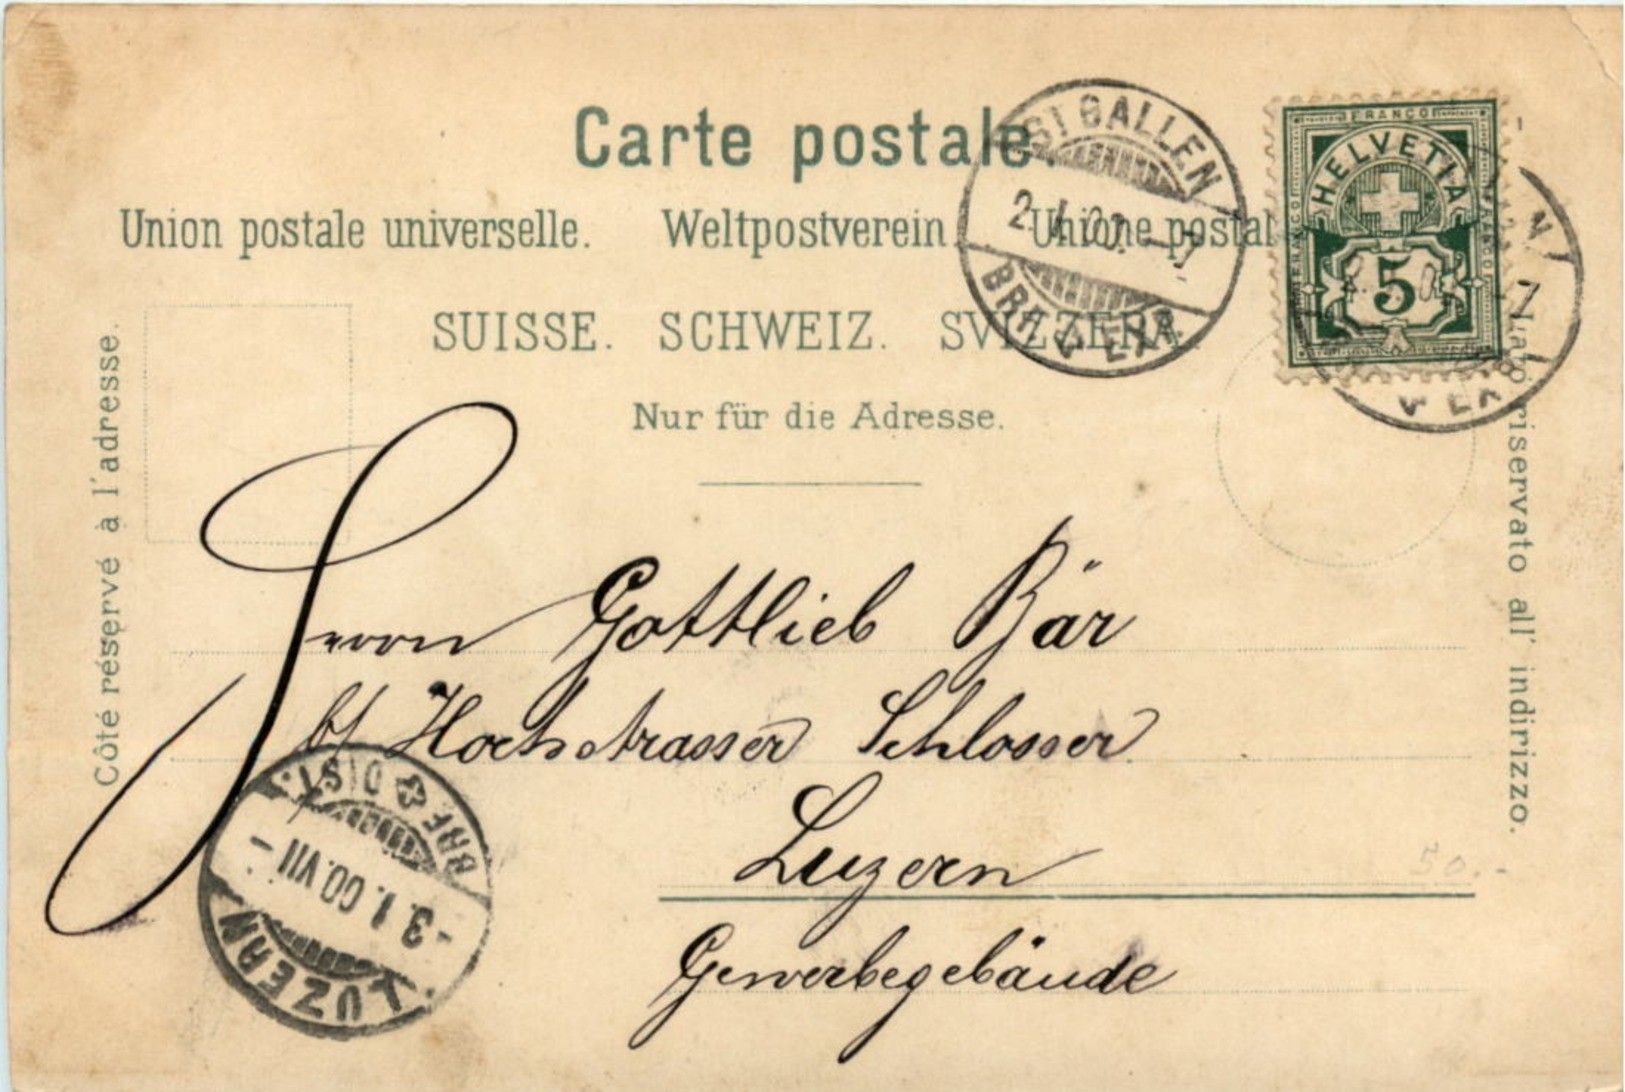 Carte postale
Union postale universelle. Weltpostverein. Unione postal
SUISSE. SCHWEIZ. SVIZZERA.
Nur für die Adresse.
Côté réservé à l'adresse.
riservato all' indirizzo.
ST GALLEN
2. I. 00. – 7
FRANCO
HELVETIA
FRANCO
5
N
7
Herrn Gottlieb Bär
b/ Hochstrasser Schlosser
Luzern
Gewerbegebäude
50.-
BRF DIST.
-3.1.00.VII-
LUZERN